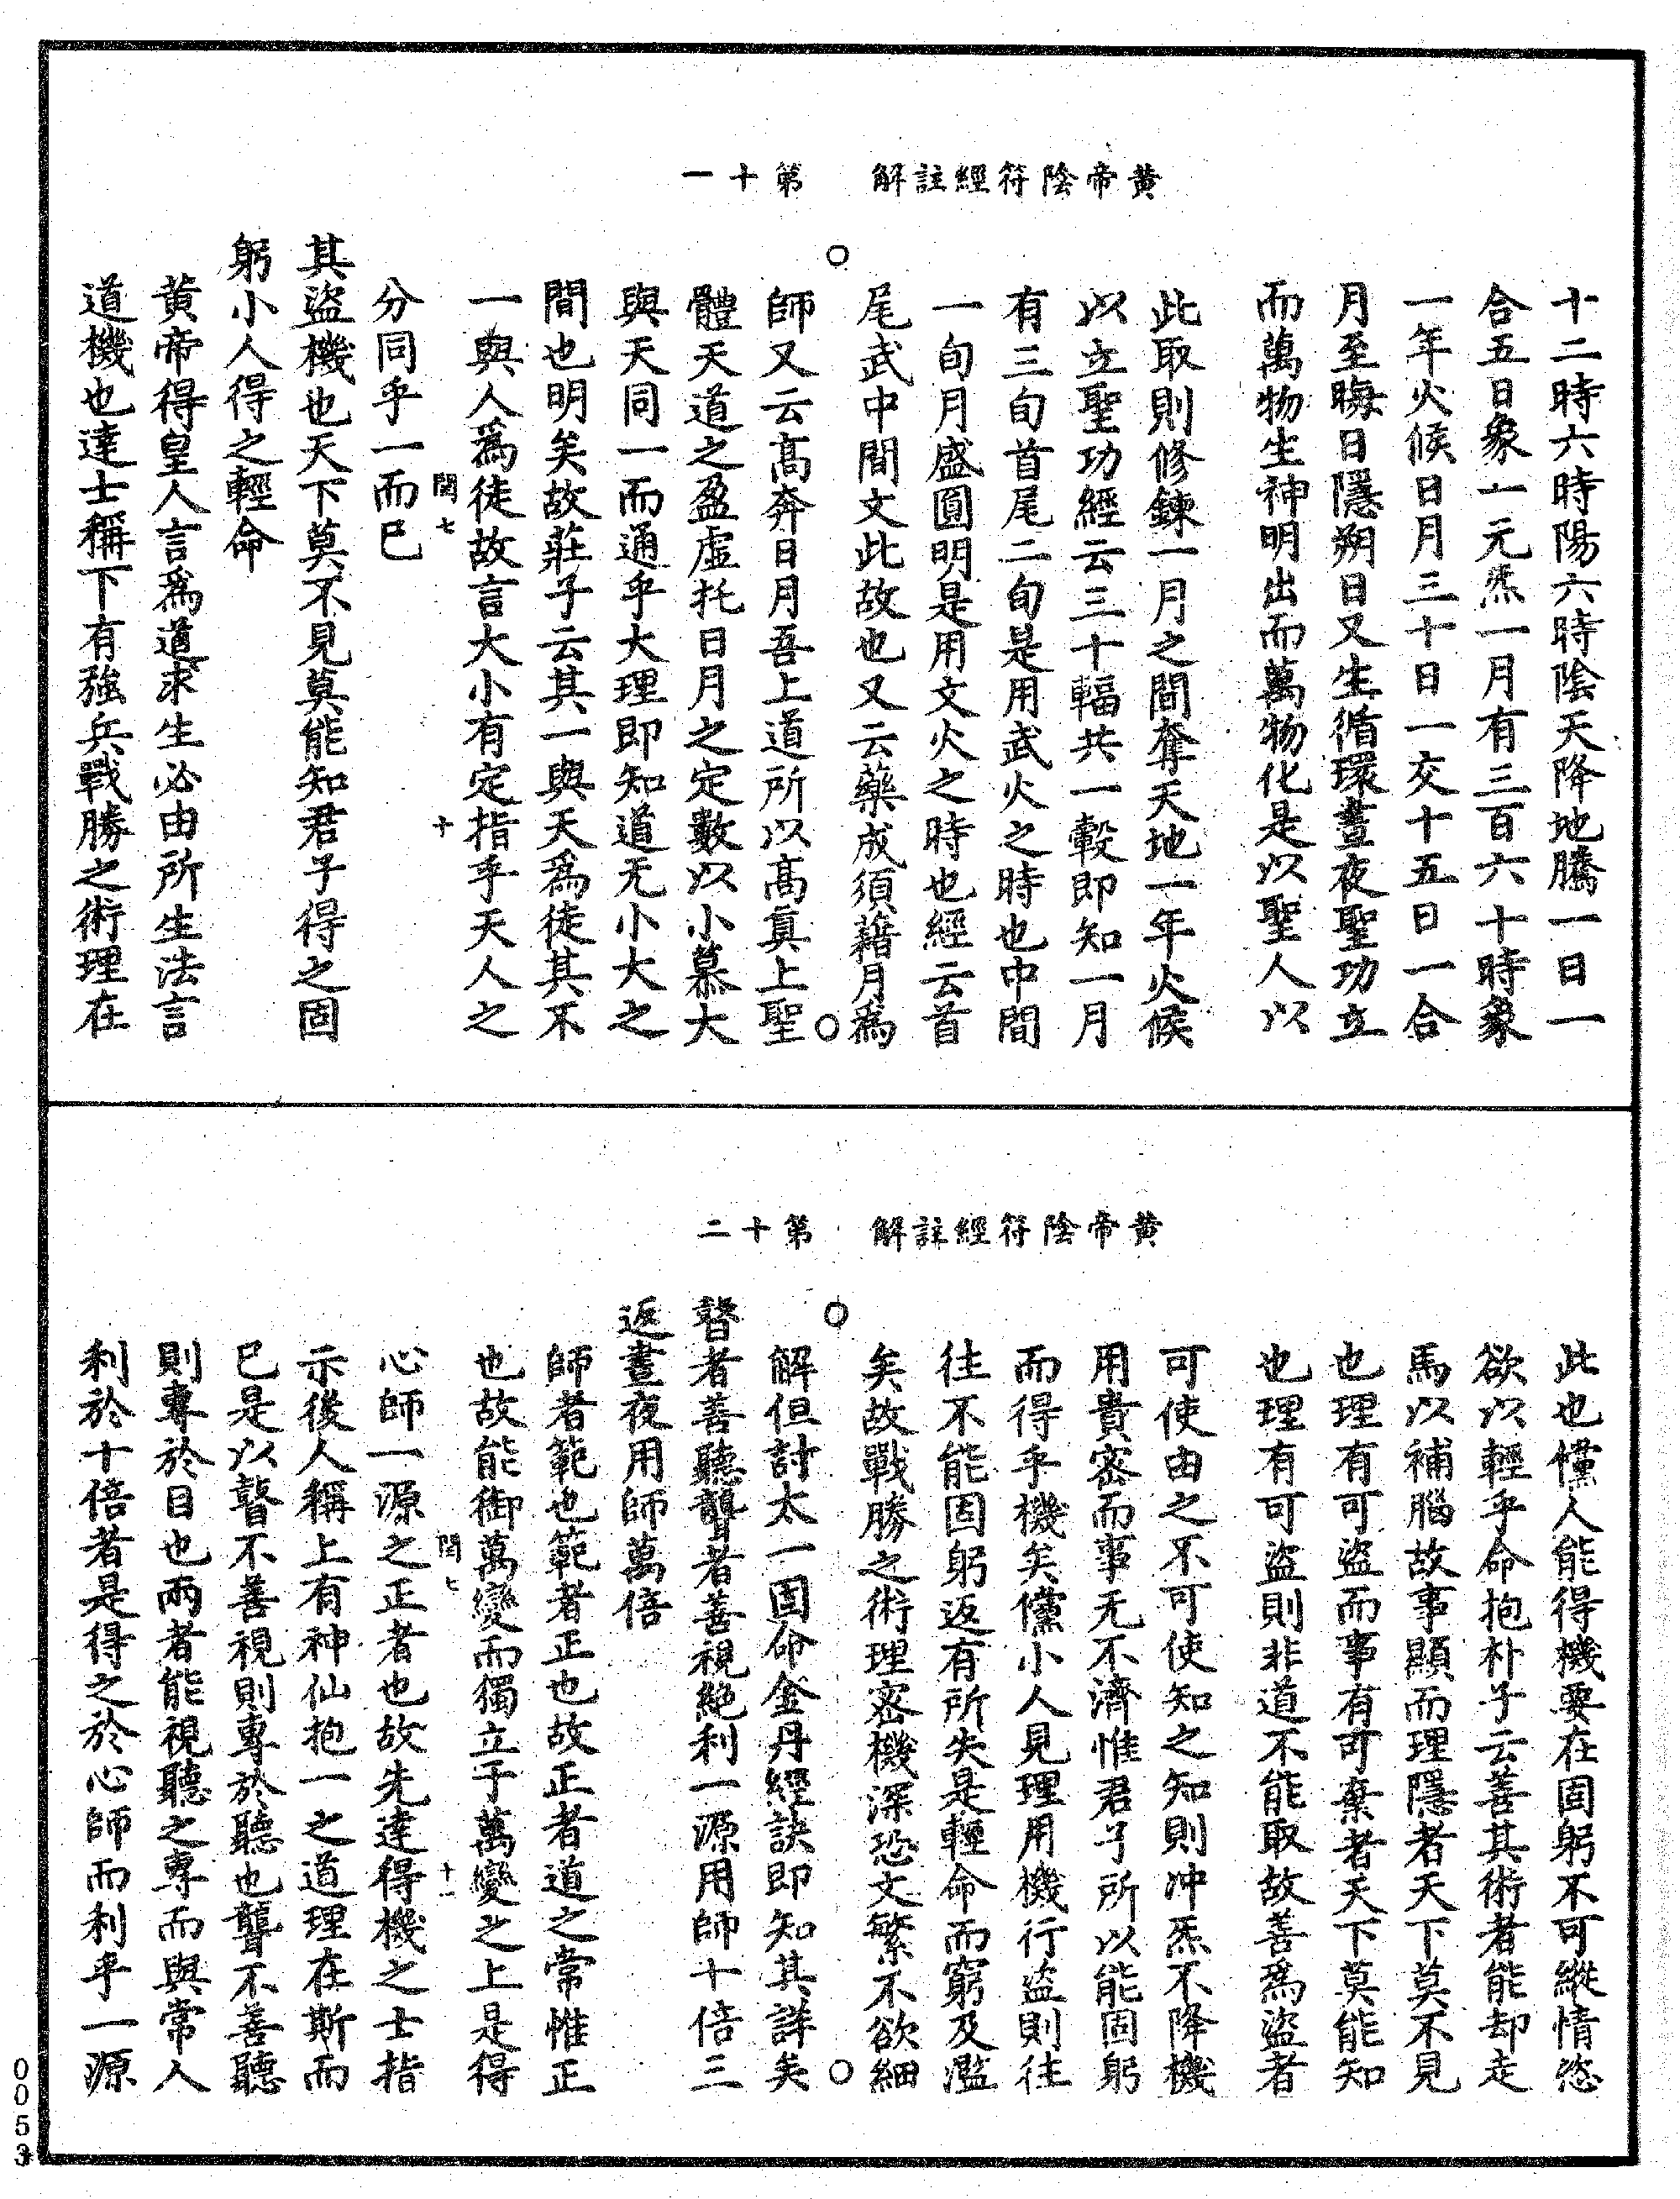 黄帝陰符經註解　第十一
十二時六時陽六時陰天降地騰一日一
合五日象一元炁一月有三百六十時象
一年火候日月三十日一交十五日一合
月至晦日隱朔日又生循環晝夜聖功立
而萬物生神明出而萬物化是以聖人以
此取則修鍊一月之間奪天地一年火候
以立聖功經云三十輻共一轂即知一月
有三旬首尾二旬是用武火之時也中間
一旬月盛圓明是用文火之時也經云首
尾武中間文此故也又云藥成須藉月為
師又云高奔日月吾上道所以高真上聖
體天道之盈虛托日月之定數以小慕大
與天同一而通乎大理即知道无小大之
間也明矣故莊子云其一與天爲徒其不
一與人爲徒故言大小有定指乎天人之
閏七　十
分同乎一而已
其盜機也天下莫不見莫能知君子得之固
躬小人得之輕命
黄帝得皇人言爲道求生必由所生法言
道機也達士稱下有強兵戰勝之術理在
黄帝陰符經註解　第十二
此也儻人能得機要在固躬不可縱情恣
欲以輕乎命抱朴子云善其術者能却走
馬以補腦故事顯而理隱者天下莫不見
也理有可盜而事有可棄者天下莫能知
也理有可盜則非道不能取故善爲盜者
可使由之不可使知之知則冲炁不降機
用貴密而事无不濟惟君子所以能固躬
而得乎機矣儻小人見理用機行盜則往
往不能固躬返有所失是輕命而窮及濫
矣故戰勝之術理密機深恐文繁不欲細
解但討太一固命金丹經訣即知其詳矣
瞽者善聽聾者善視絕利一源用師十倍三
返晝夜用師萬倍
師者範也範者正也故正者道之常惟正
也故能御萬變而獨立于萬變之上是得
閏七　十一
心師一源之正者也故先達得機之士指
示後人稱上有神仙抱一之道理在斯而
已是以瞽不善視則專於聽也聾不善聽
則專於目也兩者能視聽之專而與常人
利於十倍者是得之於心師而利乎一源
0053